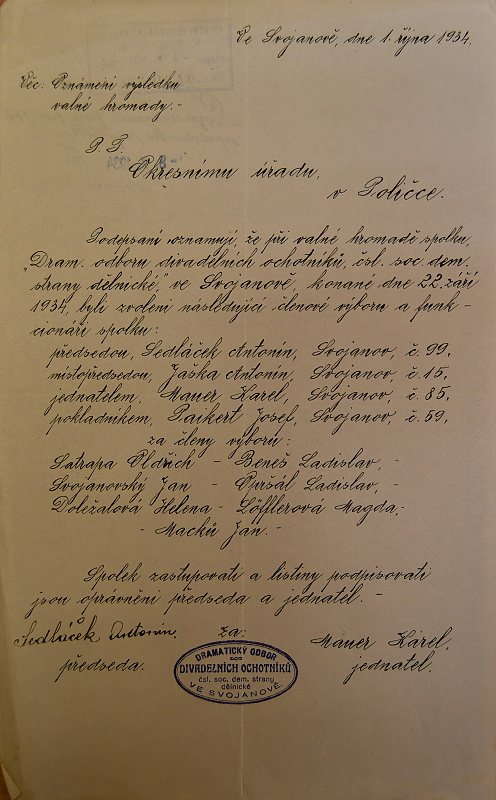 Ve Svojanově, dne 1. října 1934.
Věc: Oznámení výsledku
valné hromady.-
P. T.
Okresnímu úřadu,
v Poličce.
Podepsaní oznamují, že při valné hromadě spolku,
"Dram. odboru divadelních ochotníků, čsl. soc. dem.
strany dělnické," ve Svojanově, konané dne 22. září
1934, byli zvoleni následující členové výboru a funk-
cionáři spolku:
předsedou, Sedláček Antonín, Svojanov, č. 99,
místopředsedou, Jaška Antonín, Svojanov, č. 15,
jednatelem, Mauer Karel, Svojanov, č. 85,
pokladníkem, Paikert Josef, Svojanov, č. 59,
za členy výboru:
Satrapa Oldřich - Beneš Ladislav, -
Svojanovský Jan - Opršál Ladislav, -
Doležalová Helena - Löfflerová Magda,-
- Macků Jan. -
Spolek zastupovati a listiny podpisovati
jsou oprávněni předseda a jednatel. -
Sedláček Antonín. za: Mauer Karel,
předseda. jednatel.
DRAMATICKÝ ODBOR
DIVADELNÍCH OCHOTNÍKŮ
čsl. soc. dem. strany
dělnické
VE SVOJANOVĚ.